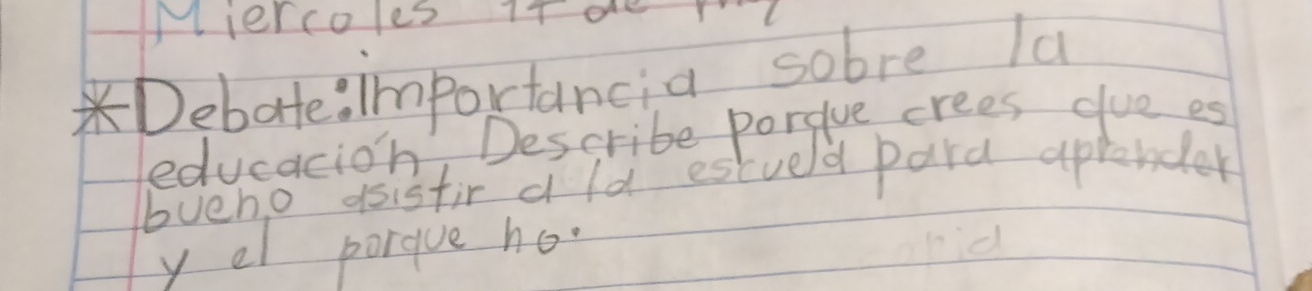 Miercoles 17 de
*Debate: Importancia sobre la
educación, Describe porque crees que es
bueno asistir a la escuela para aprender
y el porque no.